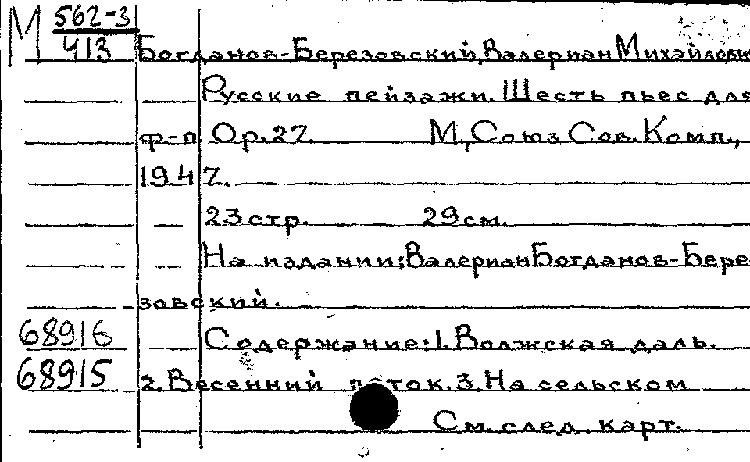 М 562-3
413 Богданов-Березовский, Валериан Михайлови
Русские пейзажи. Шесть пьес для
ф-п Ор.27. М., Союз Сов. Комп.,
1947.
23 стр. 29 см.
На издании: Валериан Богданов-Бере-
зовский.
68916 Содержание: 1. Волжская даль.
68915 2. Весенний поток. 3. На сельском
См. след. карт.